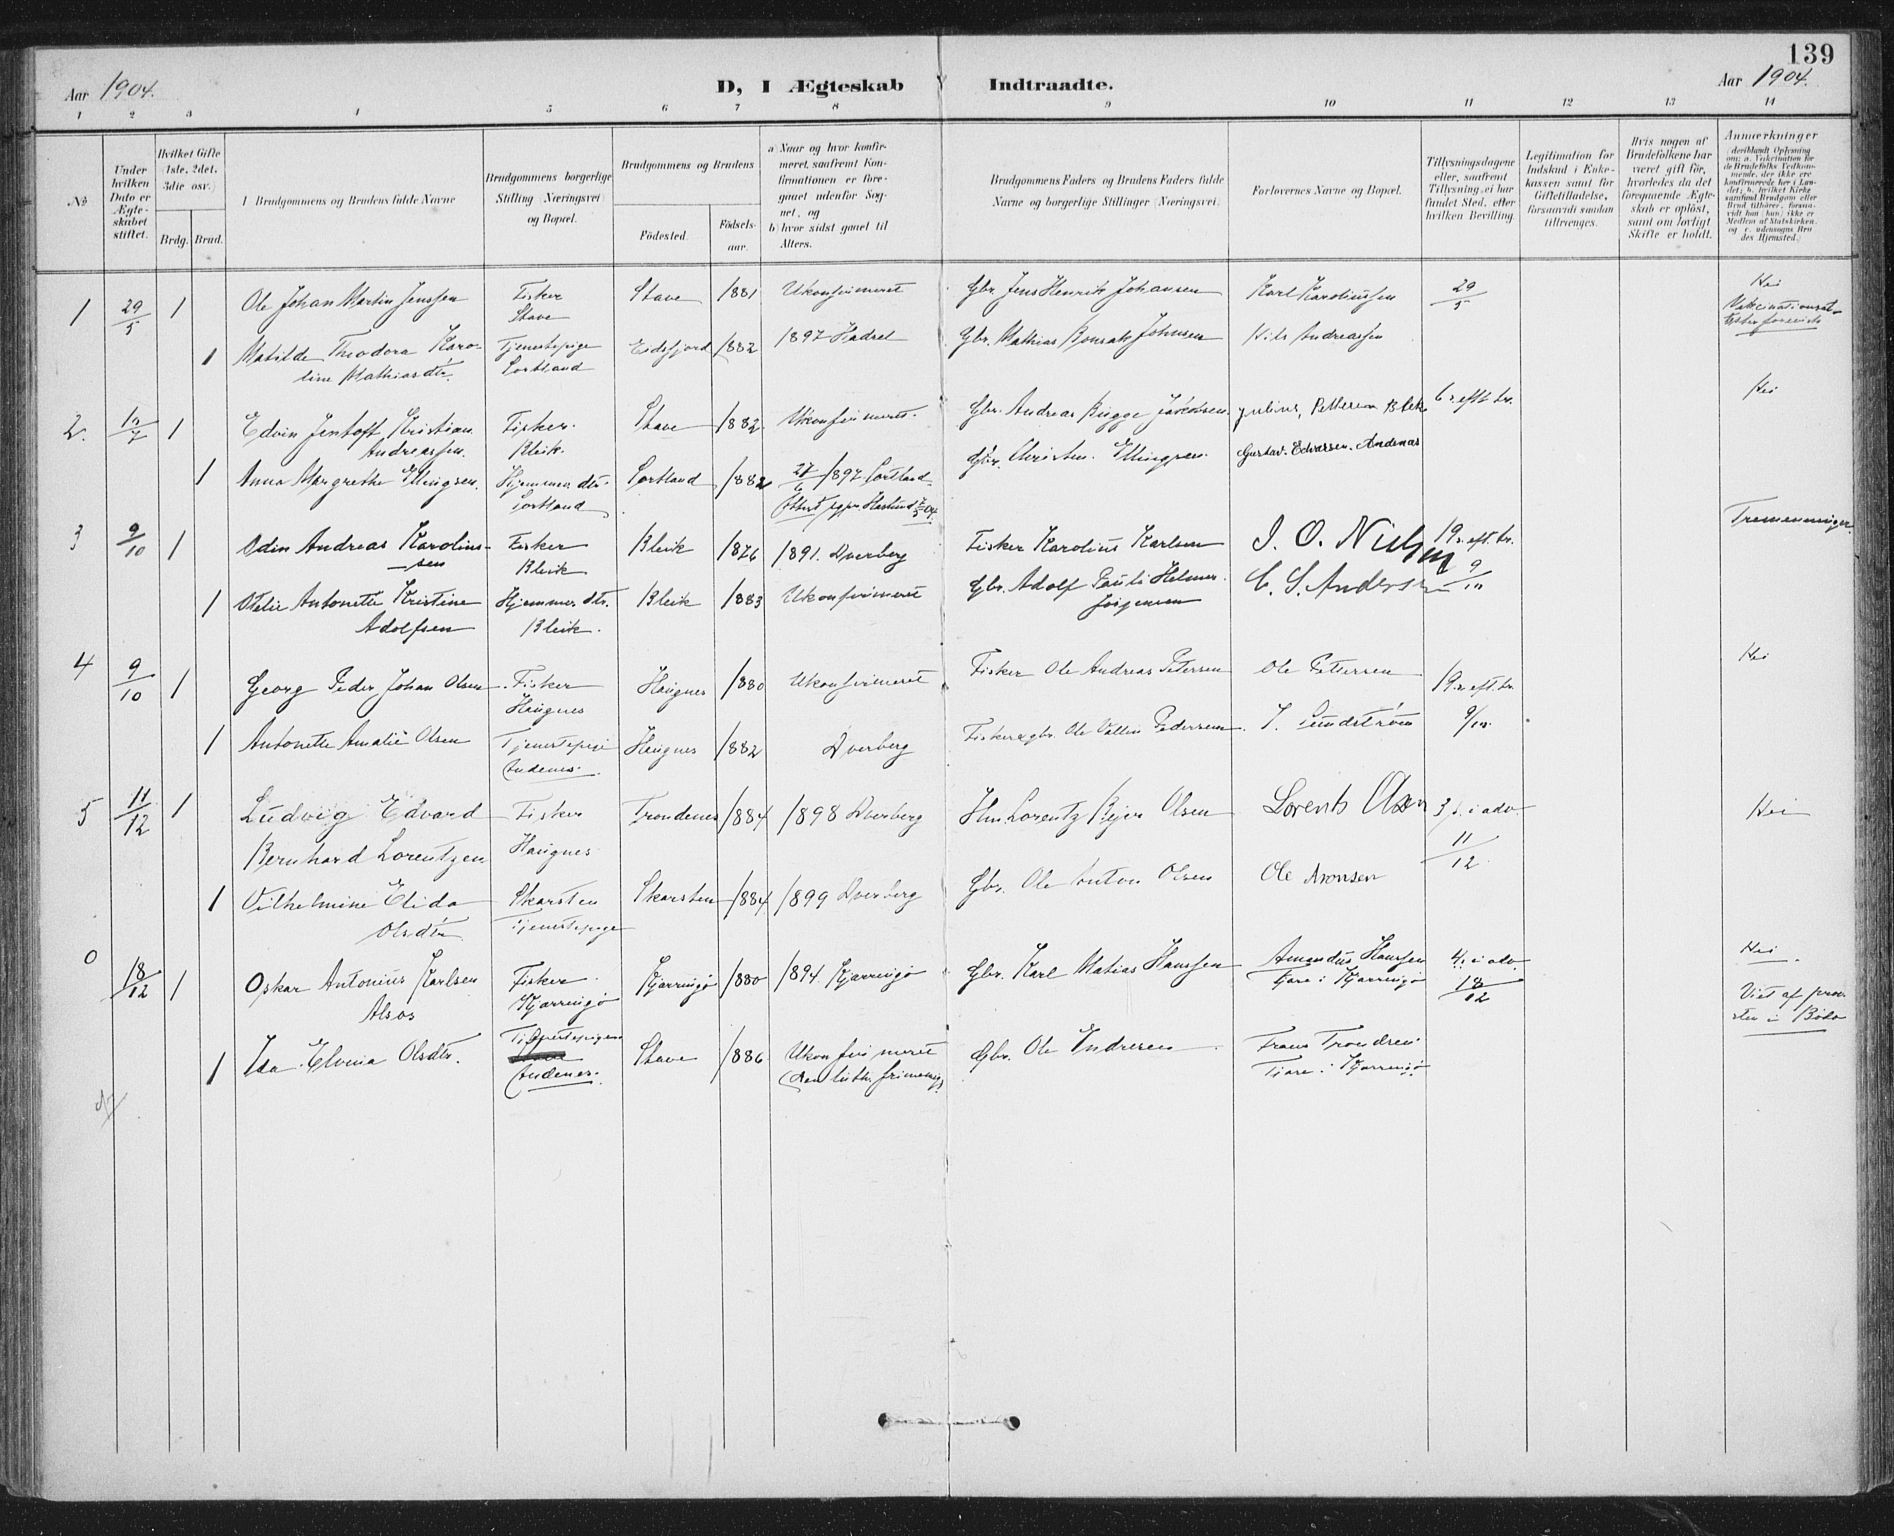 139
Aar 1904.
D, I Ægteskab Indtraadte.
Aar 1904.
1 2 3 4 5 6 7 8 9 10 11 12 13 14
No
Under hvilken Dato er Ægteskabet stiftet.
Hvilket Gifte (1ste, 2det, 3die osv.)
Brdg. Brud.
Brudgommens og Brudens fulde Navne
Brudgommens borgerlige Stilling (Næringsvei) og Bopæl.
Brudgommens og Brudens
Fødested.
Fødselsaar.
a) Naar og hvor konfirmeret, saafremt Konfirmationen er foregaaet udenfor Sognet, og
b) hvor sidst gaaet til Alters.
Brudgommens Faders og Brudens Faders fulde Navne og borgerlige Stillinger (Næringsvei)
Forlovernes Navne og Bopæl.
Tillysningsdagene eller, saafremt Tillysning ei har fundet Sted, efter hvilken Bevilling.
Legitimation for Indskud i Enkekassen samt for Giftetilladelse, forsaavidt saadan tiltrænges.
Hvis nogen af Brudefolkene har været gift før, hvorledes da det foregaaende Ægteskab er opløst, samt om lovligt Skifte er holdt.
Anmærkninger
1 29/5 1 Ole Johan Martin Jenssen Fisker Stave Stave 1881 Ukonfirmeret Gbr. Jens Henrik Johansen Karl Karoliussen 29/5 Nei
1 Matilde Theodora Karoline Mathiasdtr. Tjenestepige Sortland Eidsfjord 1882 1897 Hadsel Gbr. Mathias Johnsen Nils Andreassen
2. 1 Edvin Jentoft Kristian Andreassen. Fisker. Bleik. Stave 1882 Ukonfirmeret. Gbr. Andreas Bugge Jakobsen. Julius, Pettersen Bleik 6 s. eft. tr. Nei
1 Anna Margrethe Ellingsen. Hjemmev. dtr. Sortland Sortland 1882 27/6 1897 Sortland Gbr. Christen Ellingsen. Gustav. Edvarsen. Andenæs
3 9/10 1 Odin Andreas Karoliussen Fisker Bleik Bleik 1876 1891. Dverberg Fisker Karolius Karlsen J. O. Nielsen 19 s. eft. tr. Tremenninger
1 Otelie Antonette Kristine Adolfsen Hjemmev. dtr. Bleik. Bleik 1883 Ukonfirmeret Gbr. Adolf Pauli Helmer Jørgensen C. S. Andersen 9/10
4 9/10 1 Georg Peder Johan Olsen Fisker Haugnes Haugnes 1880 Ukonfirmeret Fisker Ole Andreas Petersen Ole Pettersen 19 s. eft. tr. Nei
1 Antonette Amalie Olsen Tjenestepige Andenes. Haugnes 1882 Dverberg Fisker & gbr. Ole Pedersen J. Sundstrøm 9/10.
5 11/12 1 Ludvig Edvard Bernhard Lorentzen Fisker Haugnes Trondenes 1884 1898 Dverberg Hm. Lorentz Bejer Olsen Lorents Olsen 3 s. i adv. 11/12 Nei
1 Vilhelmine Elida Olsdtr Skarsten Tjenestepige Skarsten 1884 1899 Dverberg Gbr. Ole Anton Olsen Ole Aronsen
0 18/12 1 Oskar Antonius Karlsen Alsos Fisker Kjærringø Kjærringø 1880 1894 Kjærringø Gbr. Karl Matias Hanssen Amandus Hanssen Fjære i Kjærringø 4. i adv. 18/12 Nei.
Viet af præsten i Bodø
1 Ida Elvina Olsdtr. Tjenestepige Andenes. Stave 1886 Ukonfirmeret (Den luth. frimenig.) Gbr. Ole Indresen Frans Trondsen Fjære i Kjærringø